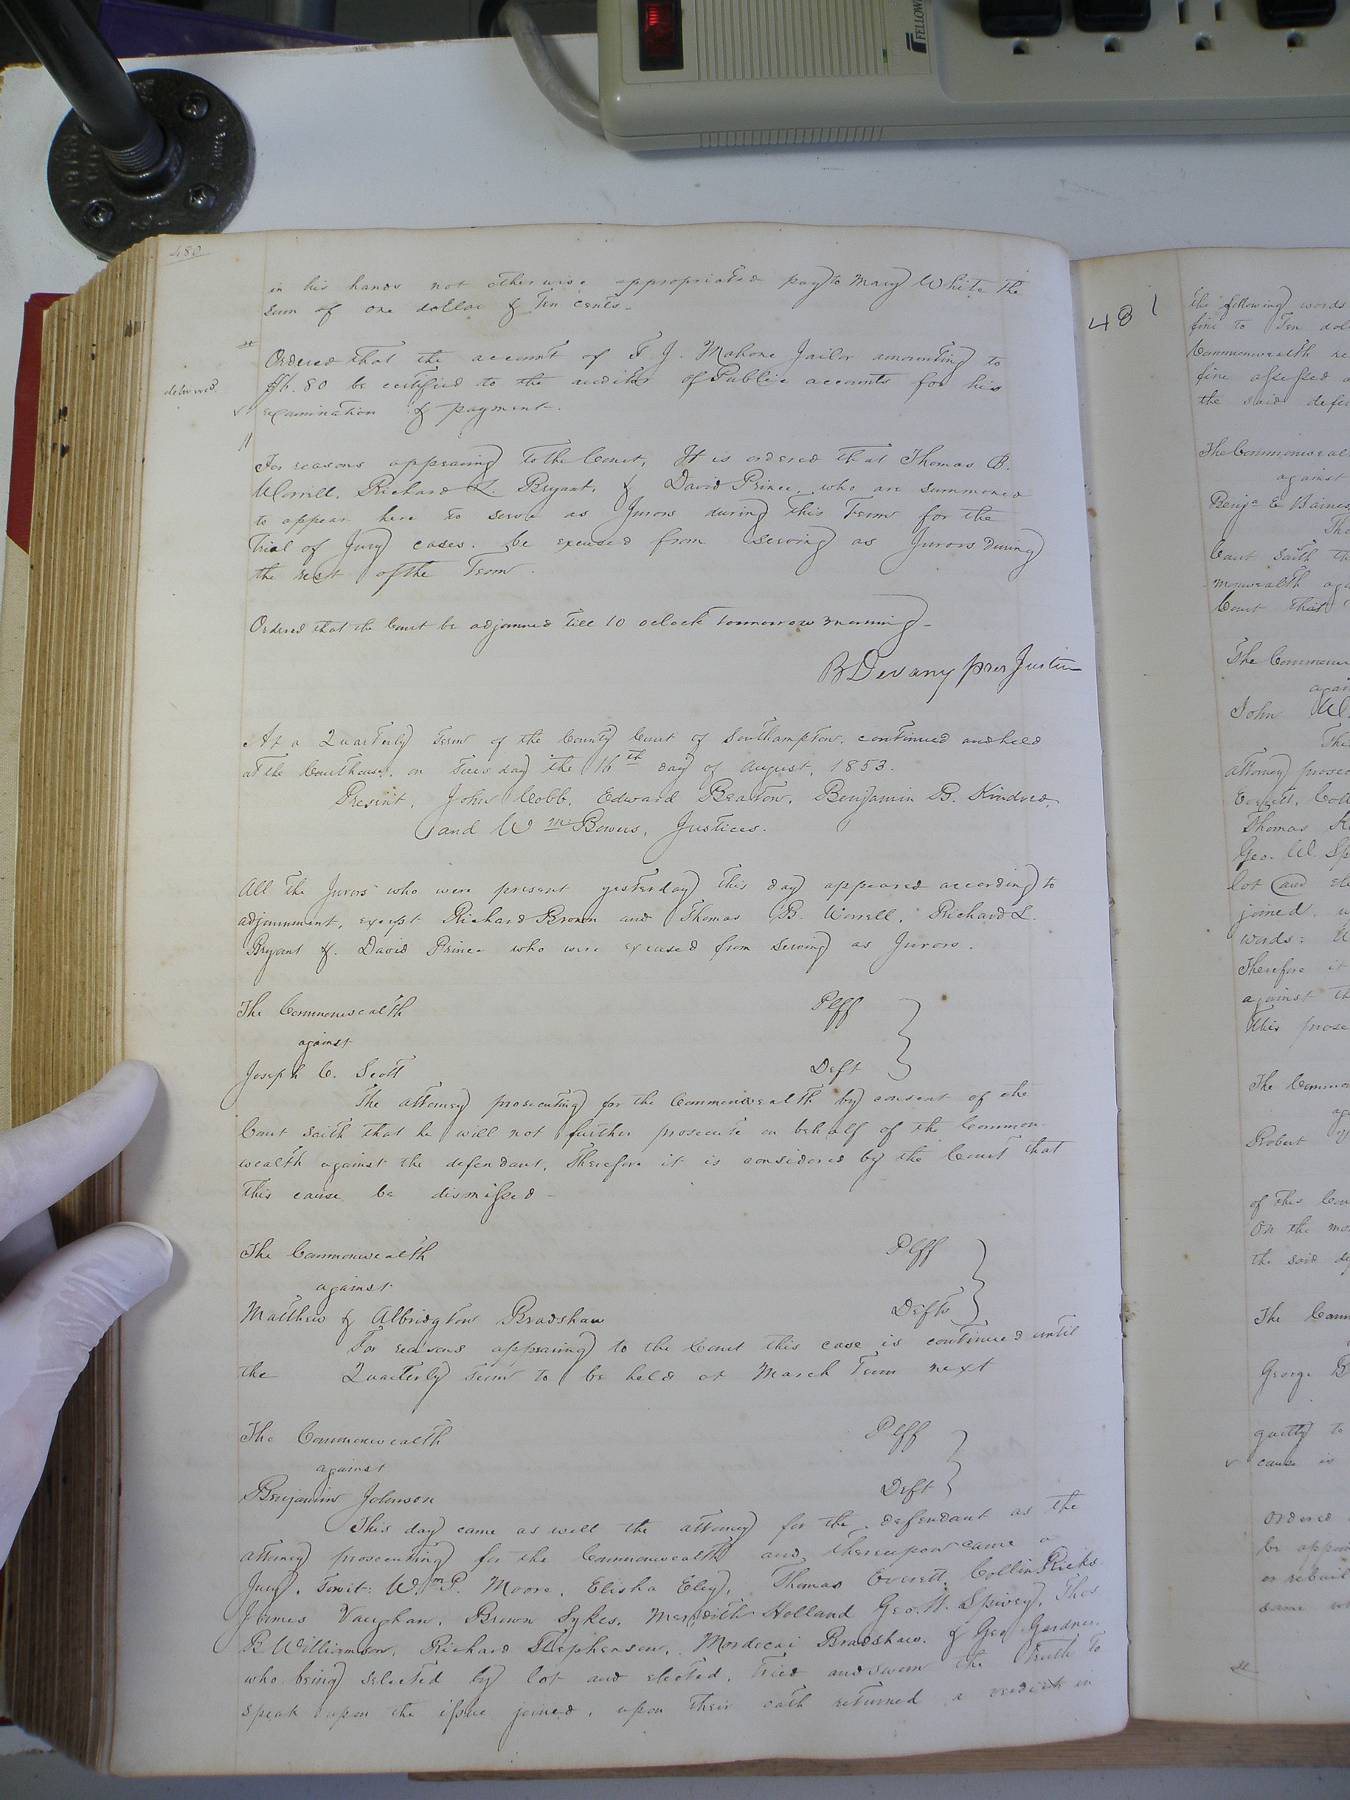 FELLOWE
480
in his hands not otherwise appropriated pay to Mary White the
sum of one dollar & Ten cents.
Ordered that the account of J. Mahone Jailor amounting to
delivered.
.80 be certified to the auditor of Public accounts for his
examination & payment.
For reasons appearing to the Court, It is ordered that Thomas B.
Worrill, Richard L. Bryant, & David Prince, who are summoned
to appear here to serve as Jurors during this Term for the
trial of Jury cases, be excused from serving as Jurors during
the rest of the Term.
Ordered that the Court be adjourned till 10 oclock tommorrow morning.
B Devany pres Justice
At a Quarterly Term of the County Court of Southampton, continued and held
at the Courthouse, on Tuesday the 16th day of August, 1853.
Present, John Cobb, Edward Beaton, Benjamin B. Kindred,
and Wm Bowers, Justices.
All the Jurors who were present yesterday this day appeared according to
adjournment, except Richard Brown and Thomas B. Worrell, Richard L.
Bryant &. David Prince who were excused from serving as Jurors.
The Commonwealth Plff
against
Joseph C. Scott Deft
The attorney prosecuting for the Commonwealth by consent of the
Court saith that he will not further prosecute on behalf of the Common-
wealth against the defendant, Therefore it is considered by the Court that
this cause be dismissed-
The Commonwealth Plff
against
Matthew & Albridgton Bradshaw Defts
For reasons appearing to the Court this case is continued until
the Quarterly Term to be held at March Term next
The Commonwealth Plff
against
Benjamin Johnson Deft
This day came as well the attorney for the defendant as the
attorney prosecuting for the Commonwealth and thereupon came a
Jury, Towit: Wm P. Moore, Elisha Eley, Thomas Everett, Collin Ricks
James Vaughan, Brown Sykes, Meredith Holland Geo. W. Spivey, Thos
R Williamson, Richard Stephenson, Mordecai Bradshaw, & Geo Gardner
who being selected by lot and elected, tried and sworn the truth to
speak upon the issue joined, upon their oath returned a verdict in
481
the following words
fine to Ten dol
Commonwealth re
fine assessed a
the said defe
The Commonweal
against
Benja E Baines
The
Court saith th
monwealth aga
Court that
The Commonw
again
John W.
The
attorney prosec
Everett, Coll
Thomas
Geo. W. Sp
lot and ele
joined, u
words: 
Therefore it
against th
this prose
The Common
ag
Robert
of this Cou
On the mo
the said de
The Comm
George B
guilty to
cause is
Ordered
be appoin
or rebuil
same wh